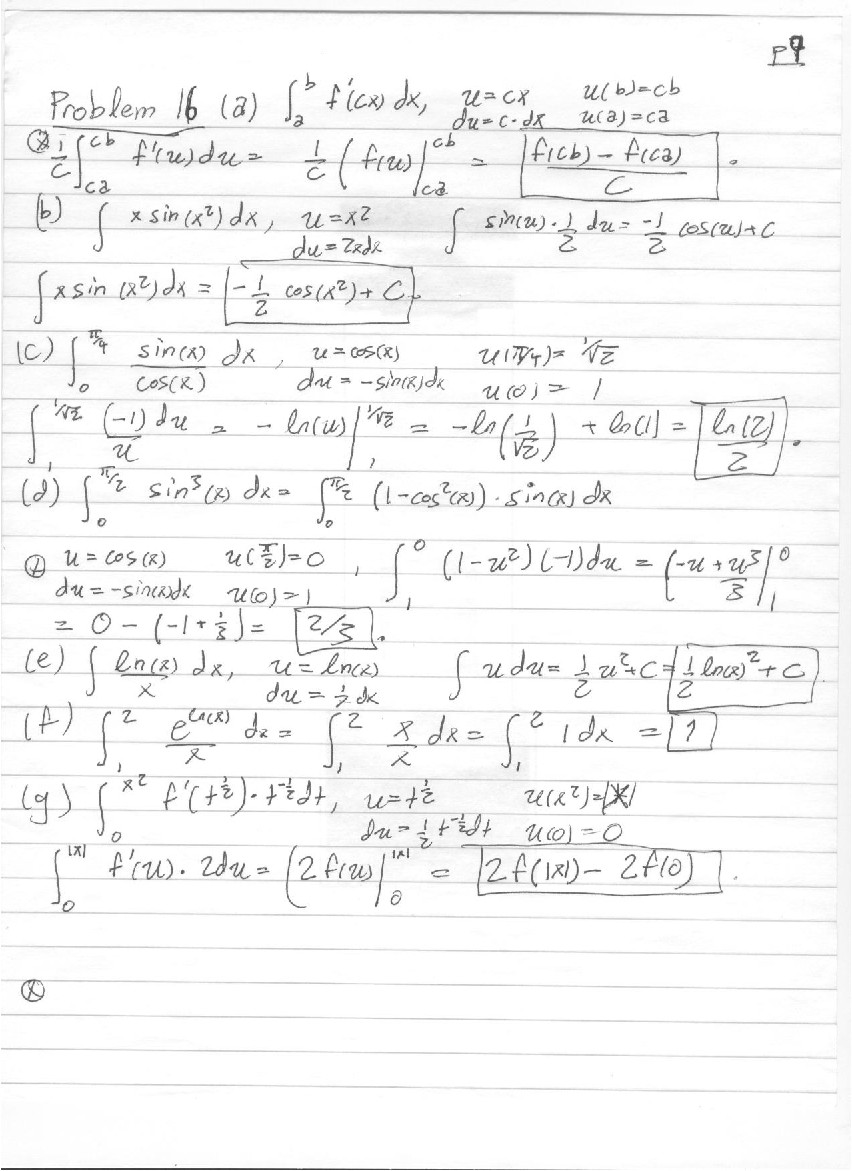 p9
Problem 16 (a) ∫_a^b f'(cx) dx, u=cx u(b)=cb
du=c·dx u(a)=ca
1/c ∫_{ca}^{cb} f'(u) du = 1/c ( f(u) |_{ca}^{cb} = (f(cb) - f(ca))/c .
(b) ∫ x sin(x²) dx, u=x² ∫ sin(u)·1/2 du = -1/2 cos(u)+C
du=2xdx
∫ x sin(x²) dx = -1/2 cos(x²) + C.
(c) ∫_0^{π/4} sin(x)/cos(x) dx, u=cos(x) u(π/4)= 1/√2
du = -sin(x)dx u(0) = 1
∫_1^{1/√2} (-1)du/u = -ln(u) |_1^{1/√2} = -ln(1/√2) + ln(1) = ln(2)/2 .
(d) ∫_0^{π/2} sin³(x) dx = ∫_0^{π/2} (1-cos²(x))·sin(x) dx
u = cos(x) u(π/2)=0 , ∫_1^0 (1-u²)(-1)du = (-u + u³/3 |_1^0
du = -sin(x)dx u(0)=1
= 0 - (-1 + 1/3) = 2/3 .
(e) ∫ ln(x)/x dx, u = ln(x) ∫ u du = 1/2 u² + C = 1/2 ln(x)² + C
du = 1/x dx
(f) ∫_1^2 e^{ln(x)}/x dx = ∫_1^2 x/x dx = ∫_1^2 1 dx = 1
(g) ∫_0^{x²} f'(t^{1/2})·t^{-1/2} dt, u=t^{1/2} u(x²)=|x|
du = 1/2 t^{-1/2} dt u(0) = 0
∫_0^{|x|} f'(u)·2du = (2f(u) |_0^{|x|} = 2f(|x|) - 2f(0) .